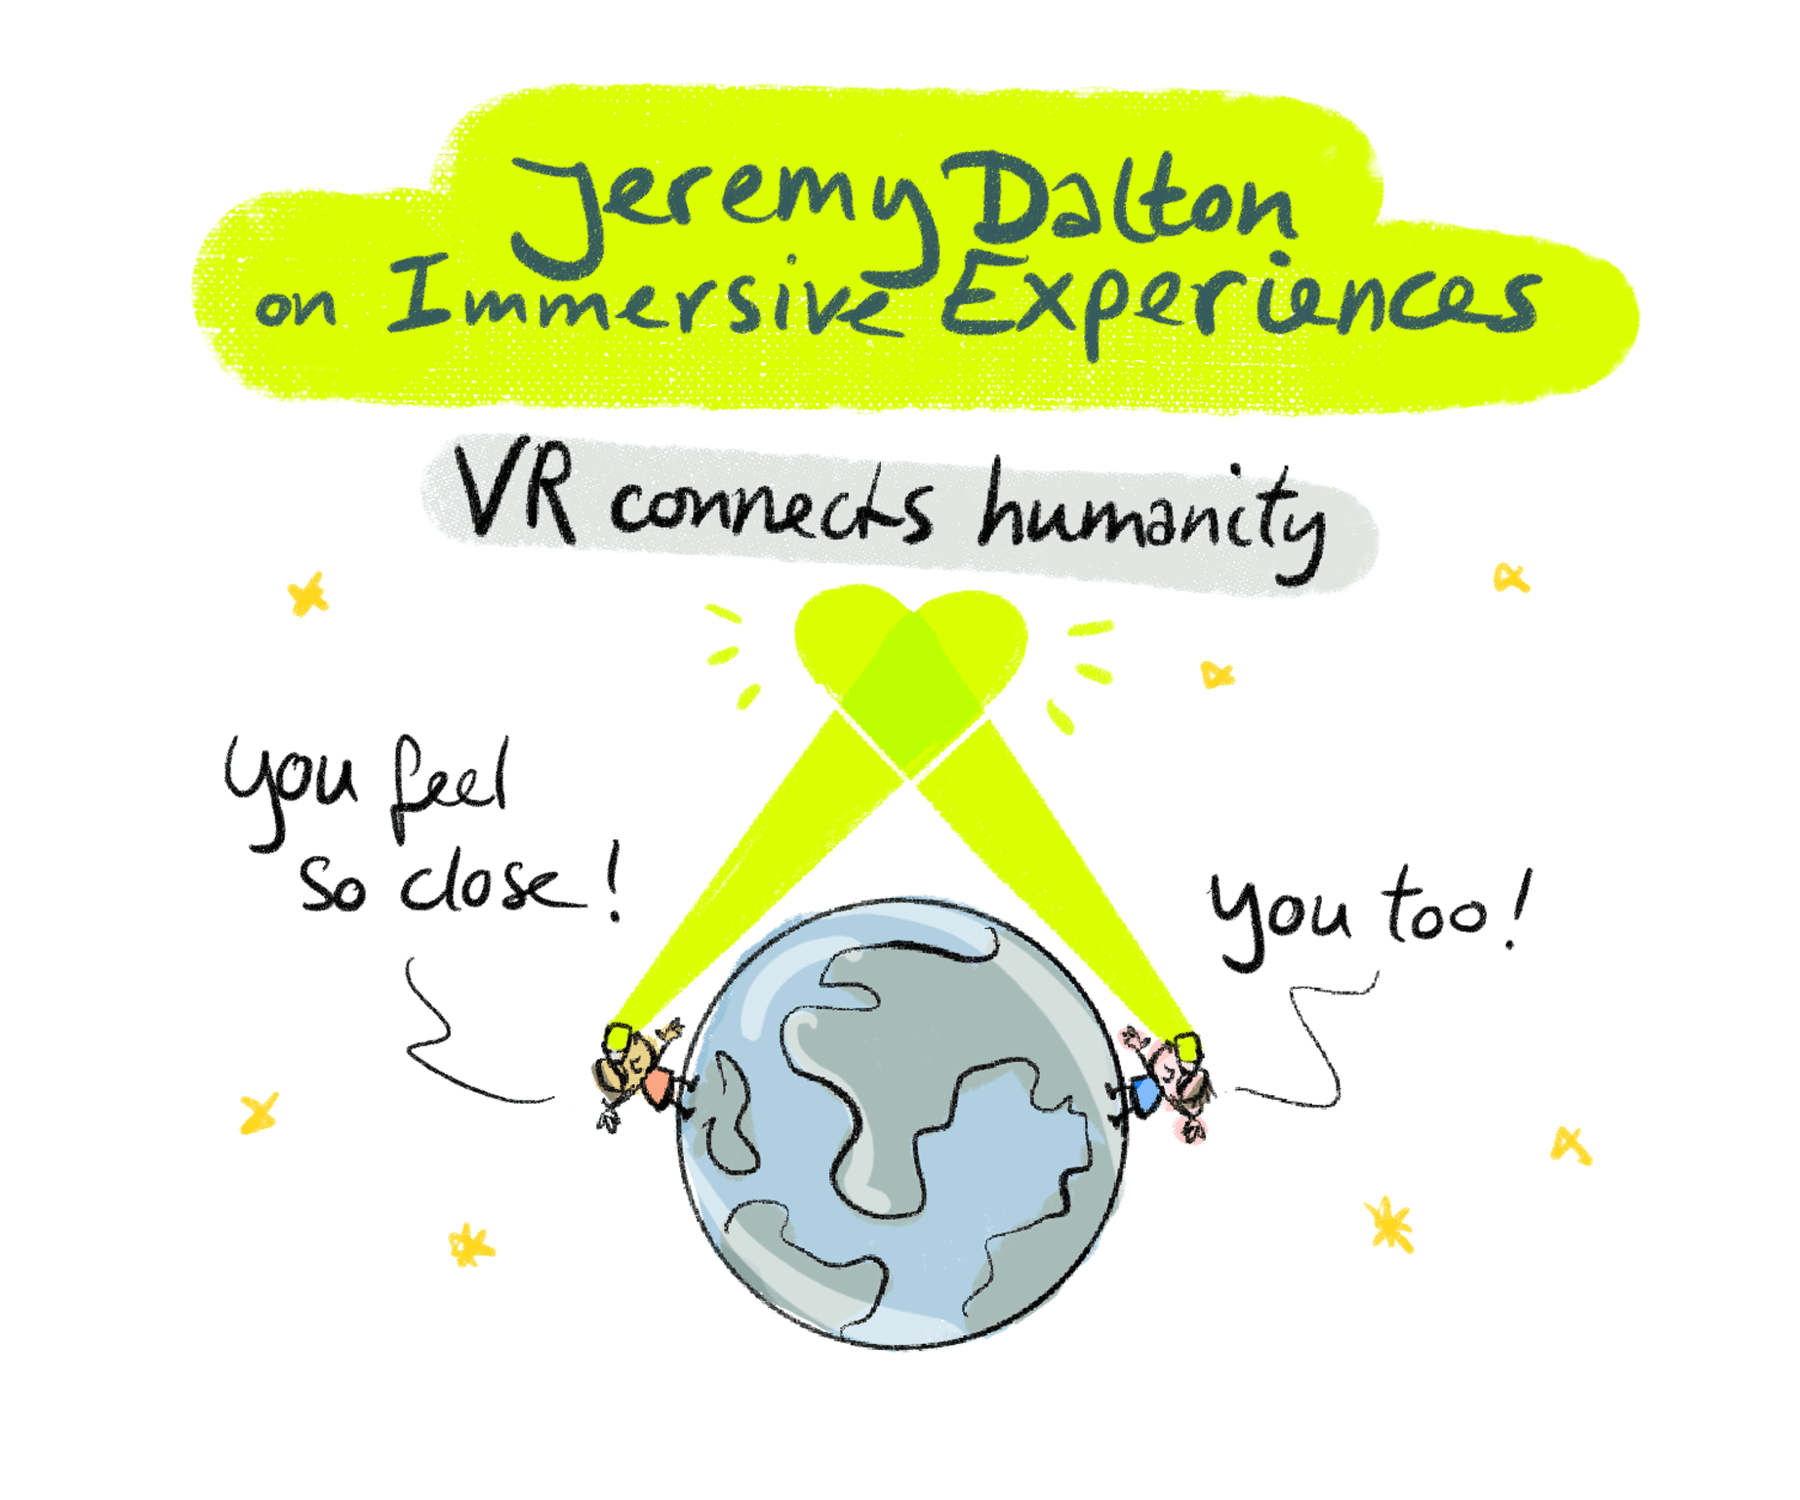 Jeremy Dalton
on Immersive Experiences
VR connects humanity
you feel
so close!
you too!